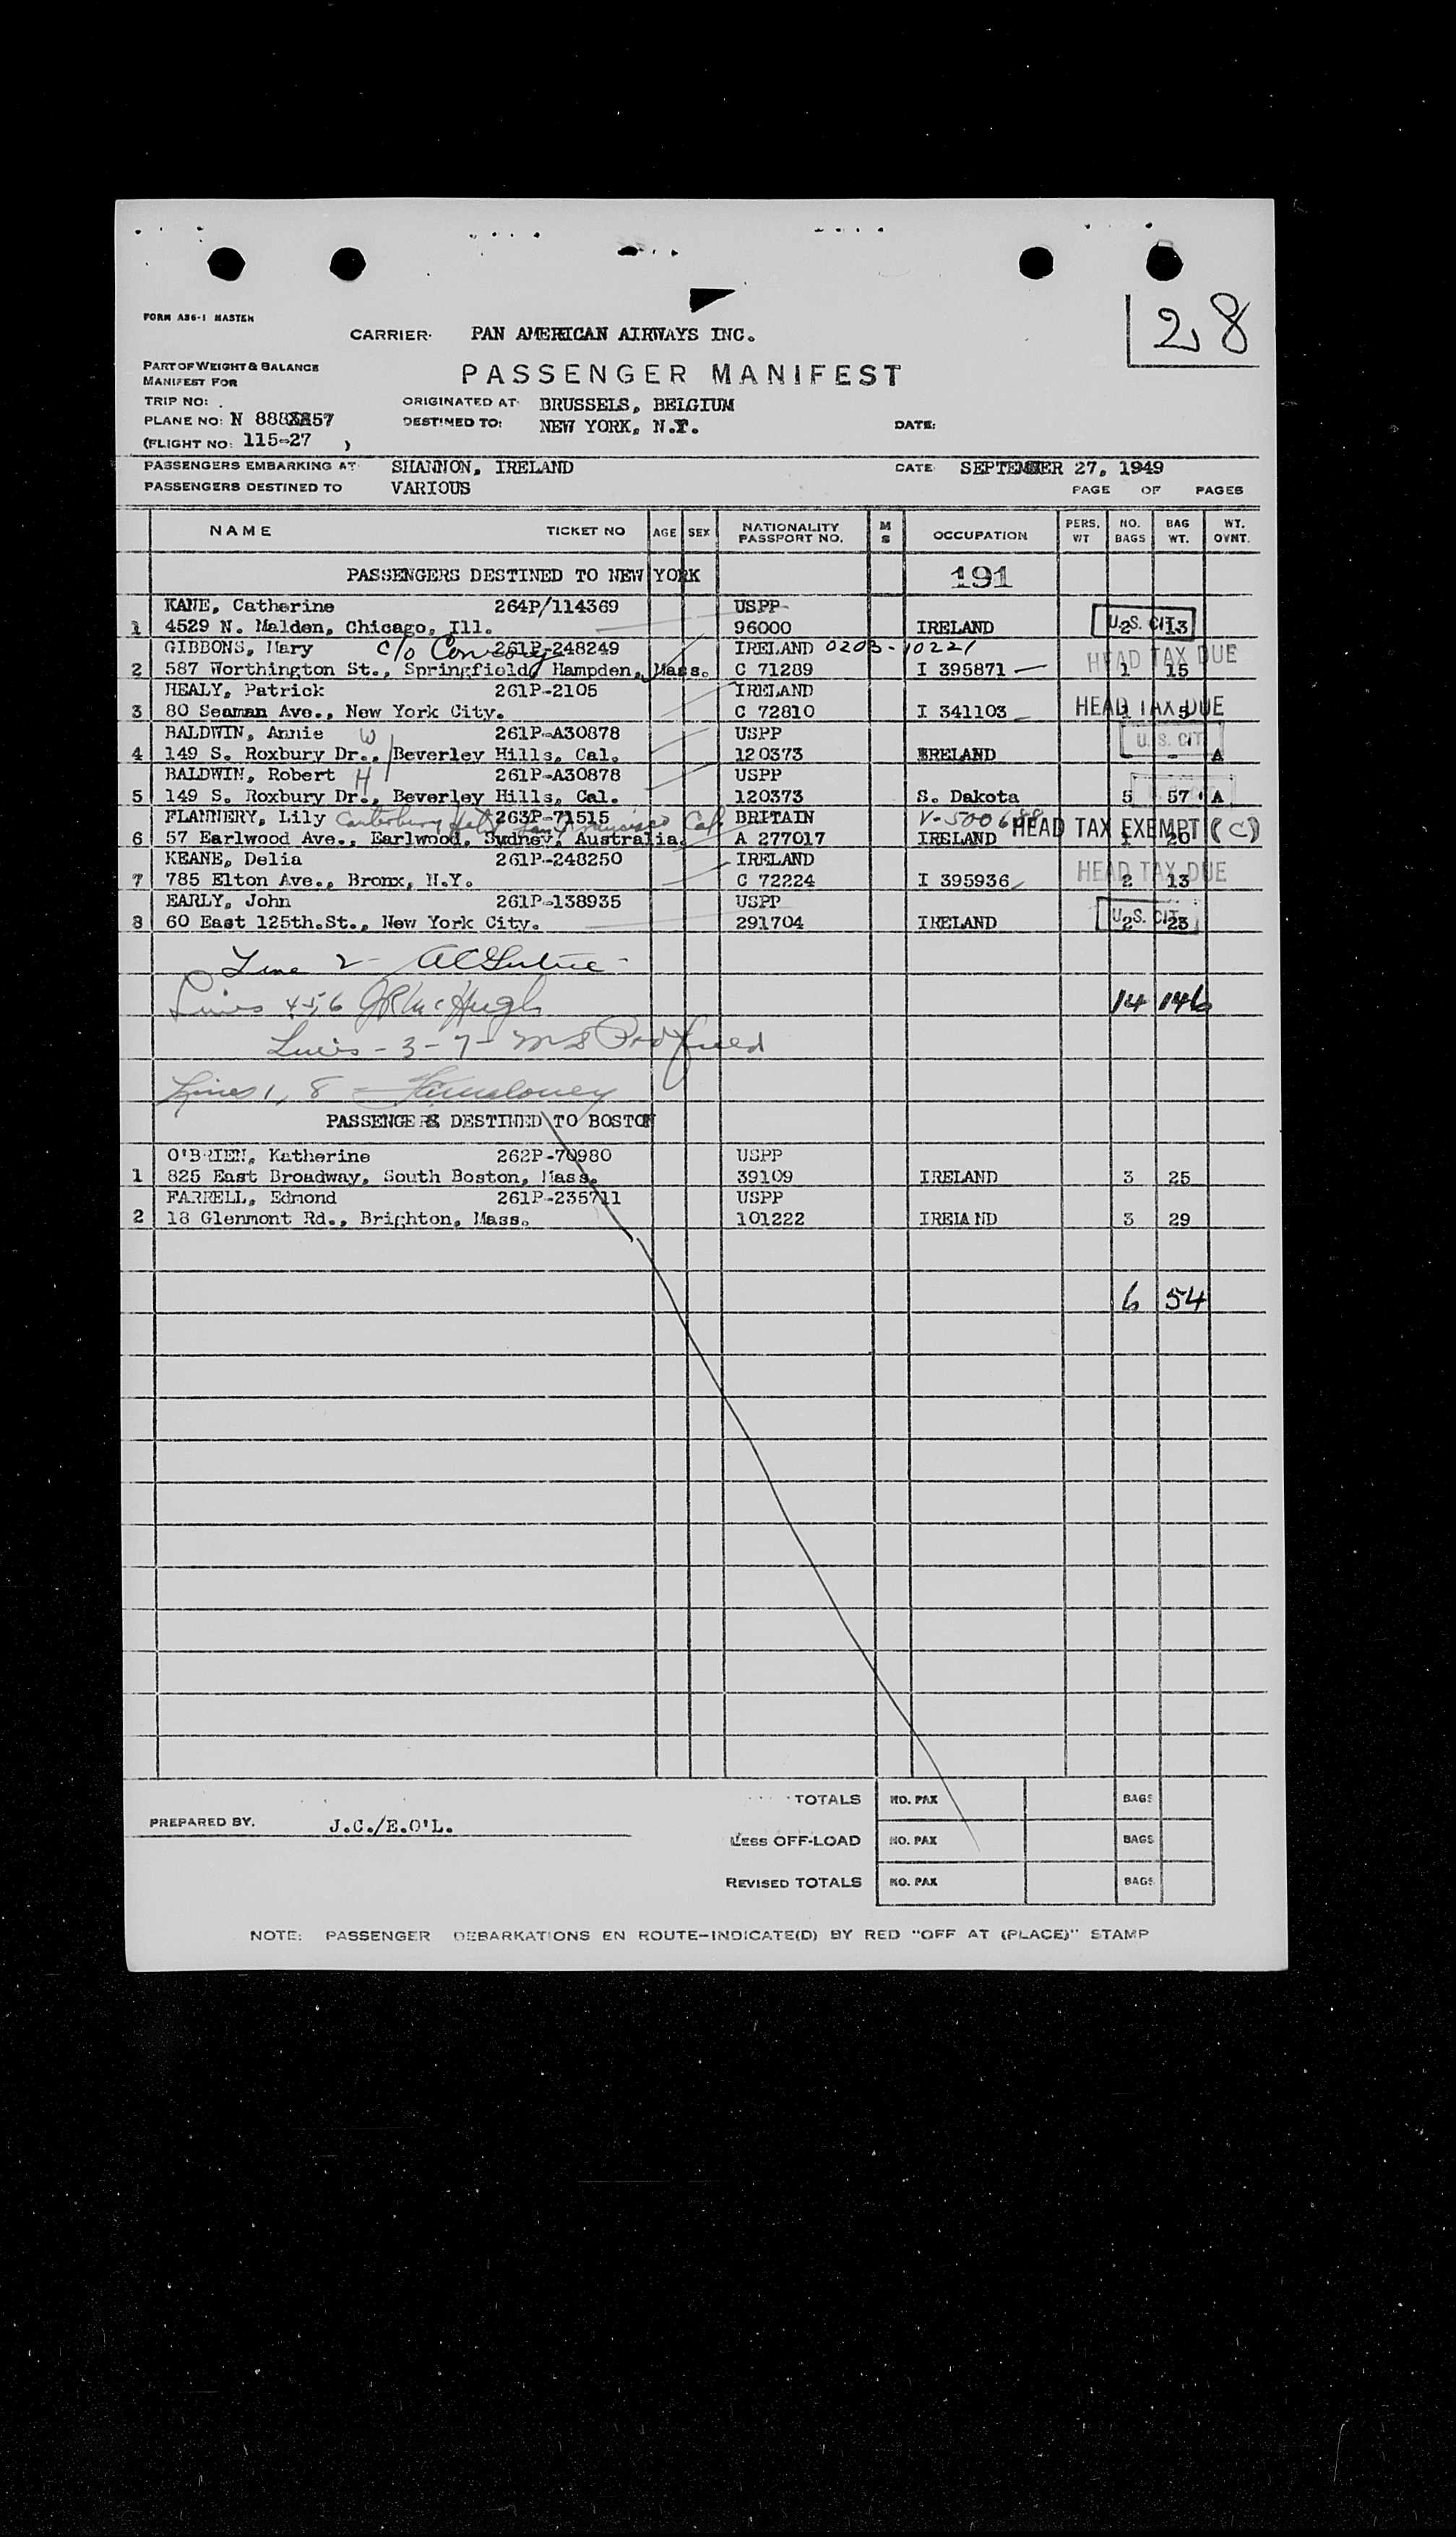 28
FORM A36-1 MASTER
CARRIER: PAN AMERICAN AIRWAYS INC.
PART OF WEIGHT & BALANCE
MANIFEST FOR
PASSENGER MANIFEST
TRIP NO:
ORIGINATED AT: BRUSSELS, BELGIUM
PLANE NO: N 88857
DESTINED TO: NEW YORK, N.Y.
DATE:
(FLIGHT NO: 115-27 )
PASSENGERS EMBARKING AT SHANNON, IRELAND
DATE SEPTEMBER 27, 1949
PASSENGERS DESTINED TO VARIOUS
PAGE OF PAGES
NAME TICKET NO AGE SEX NATIONALITY PASSPORT NO. M S OCCUPATION PERS. WT NO. BAGS BAG WT. WT. OVNT.
PASSENGERS DESTINED TO NEW YORK 191
KANE, Catherine 264P/114369 USPP
1 4529 N. Malden, Chicago, Ill. 96000 IRELAND U.S. CIT. 2 13
GIBBONS, Mary c/o Conroy 261P-248249 IRELAND 0203-10221
2 587 Worthington St., Springfield, Hampden, Mass. C 71289 I 395871 HEAD TAX DUE 1 15
HEALY, Patrick 261P-2105 IRELAND
3 80 Seaman Ave., New York City. C 72810 I 341103 HEAD TAX DUE 1 5
BALDWIN, Annie W 261P-A30878 USPP
4 149 S. Roxbury Dr., Beverley Hills, Cal. 120373 IRELAND U.S. CIT. - - A
BALDWIN, Robert H 261P-A30878 USPP
5 149 S. Roxbury Dr., Beverley Hills, Cal. 120373 S. Dakota 5 57 A
FLANNERY, Lily Canterbury Hotel San Francisco Cal. 263P-71515 BRITAIN
6 57 Earlwood Ave., Earlwood, Sydney, Australia. A 277017 IRELAND HEAD TAX EXEMPT (C) 1 20
KEANE, Delia 261P-248250 IRELAND
7 785 Elton Ave., Bronx, N.Y. C 72224 I 395936 HEAD TAX DUE 2 13
EARLY, John 261P-138935 USPP
8 60 East 125th.St., New York City. 291704 IRELAND U.S. CIT. 2 23
Line 2-
Lines 4-5,6 JR McHugh 14 146
Lines - 3-7-
Lines 1, 8
PASSENGERS DESTINED TO BOSTON
O'BRIEN, Katherine 262P-70980 USPP
1 825 East Broadway, South Boston, Mass. 39109 IRELAND 3 25
FARRELL, Edmond 261P-235711 USPP
2 18 Glenmont Rd., Brighton, Mass. 101222 IRELAND 3 29
6 54
TOTALS NO. PAX BAGS
PREPARED BY. J.C./E.O'L.
LESS OFF-LOAD NO. PAX BAGS
REVISED TOTALS NO. PAX BAGS
NOTE: PASSENGER DEBARKATIONS EN ROUTE-INDICATE(D) BY RED "OFF AT (PLACE)" STAMP